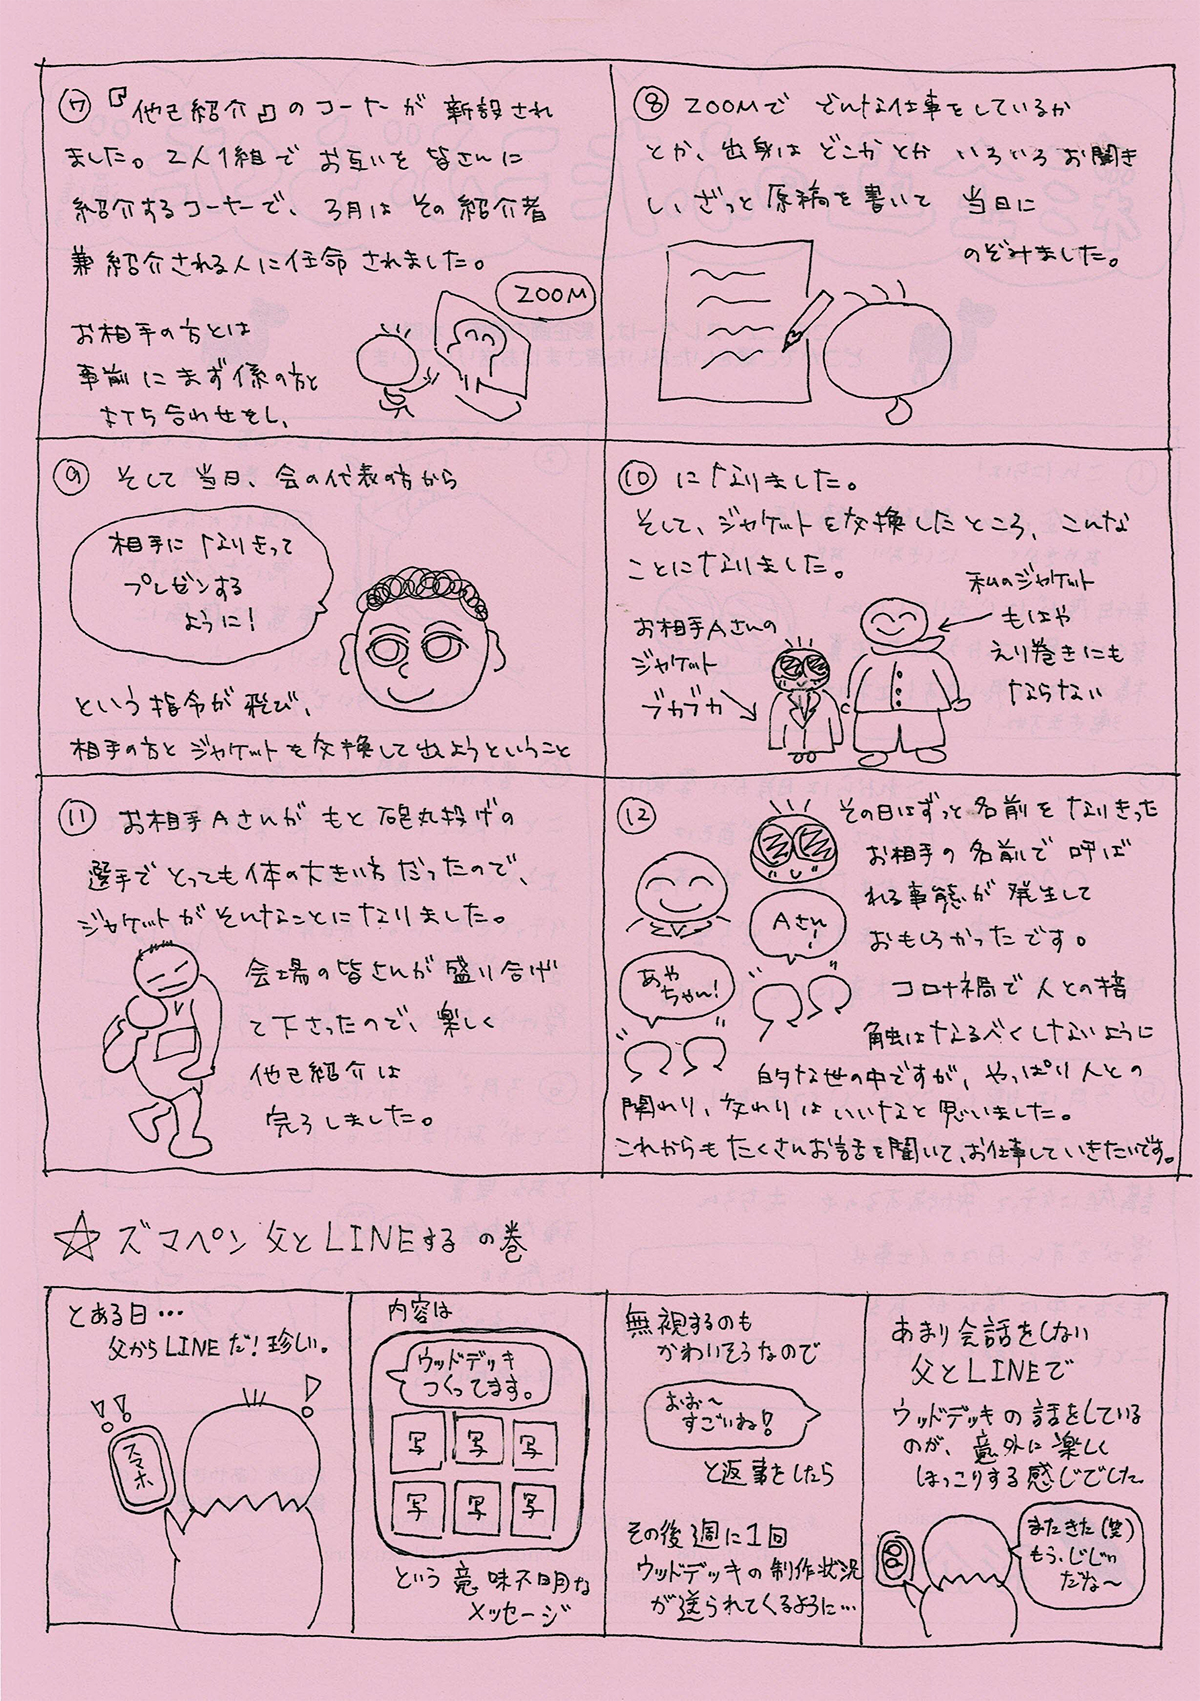 ⑦『他己紹介』のコーナーが 新設され
ました。2人1組で お互いを 皆さんに
紹介するコーナーで、3月は その 紹介者
兼 紹介される人に任命 されました。
お相手の方とは
事前に まず係の方と
打ち合わせをし、
ZOOM
⑧ ZOOMで どんな仕事をしているか
とか、出身は どこか とか いろいろ お聞き
し、ざっと 原稿を 書いて 当日に
のぞみました。
⑨ そして 当日、会の代表の方から
相手に なりきって
プレゼンする
ように!
という 指令が 飛び、
相手の方と ジャケットを 交換して 出ようということ
⑩ に なりました。
そして、ジャケットを 交換したところ、こんな
ことになりました。
お相手Aさんの
ジャケット
ブカブカ
私のジャケット
もはや
えり巻きにも
ならない
⑪ お相手Aさんが もと 砲丸投げの
選手で とっても 体の大きい方だったので、
ジャケットが そんなことに なりました。
会場の皆さんが 盛り合げ
て下さったので、楽しく
他己紹介は
完了しました。
⑫ その日はずっと 名前を なりきった
お相手の 名前で 呼ば
れる事態が 発生して
おもしろかったです。
Aさん!
あや
ちゃん!
コロナ禍で 人との接
触は なるべく しないように
的な世の中ですが、やっぱり 人との
関わり、交わりは いいなと 思いました。
これからも たくさんお話を聞いて、お仕事していきたいです。
☆ ズマペン 父とLINEする の巻
とある日…
父からLINEだ!珍しい。
!!
!
スマホ
内容は
ウッドデッキ
つくってます。
写 写 写
写 写 写
という 意味不明な
メッセージ
無視するのも
かわいそうなので
おお〜
すごいね!
と返事をしたら
その後 週に1回
ウッドデッキの 制作状況
が送られてくるように…
あまり 会話をしない
父とLINEで
ウッドデッキの 話をしている
のが、意外に 楽しく
ほっこりする 感じでした。
またきた(笑)
もう、じじい
だな〜